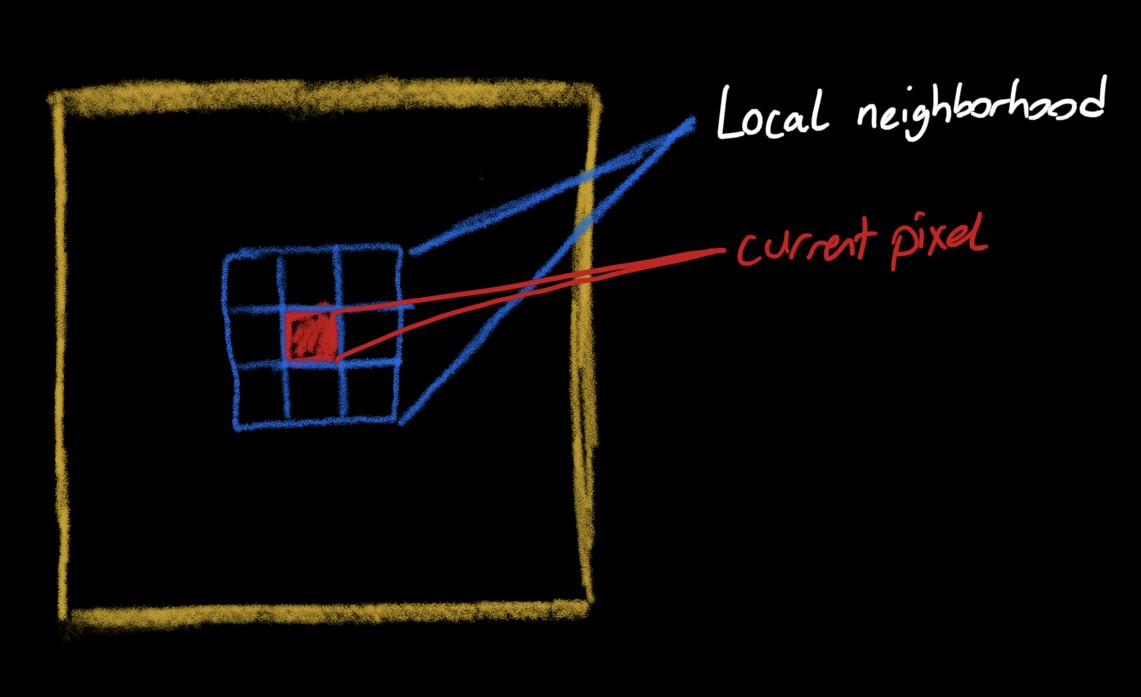 Local neighborhood
current pixel